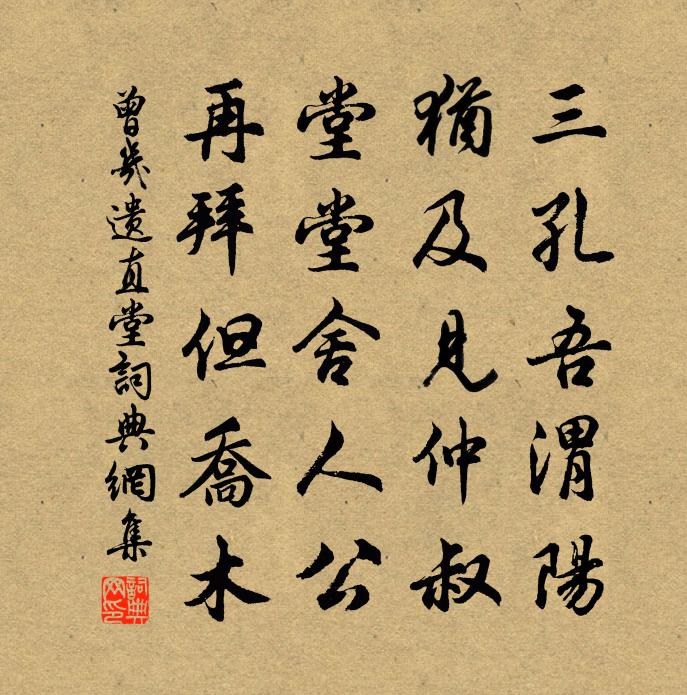 三孔吾渭陽
猶及見仲叔
堂堂舍人公
再拜但喬木
曾幾遺直堂詞典網集
詞典网印